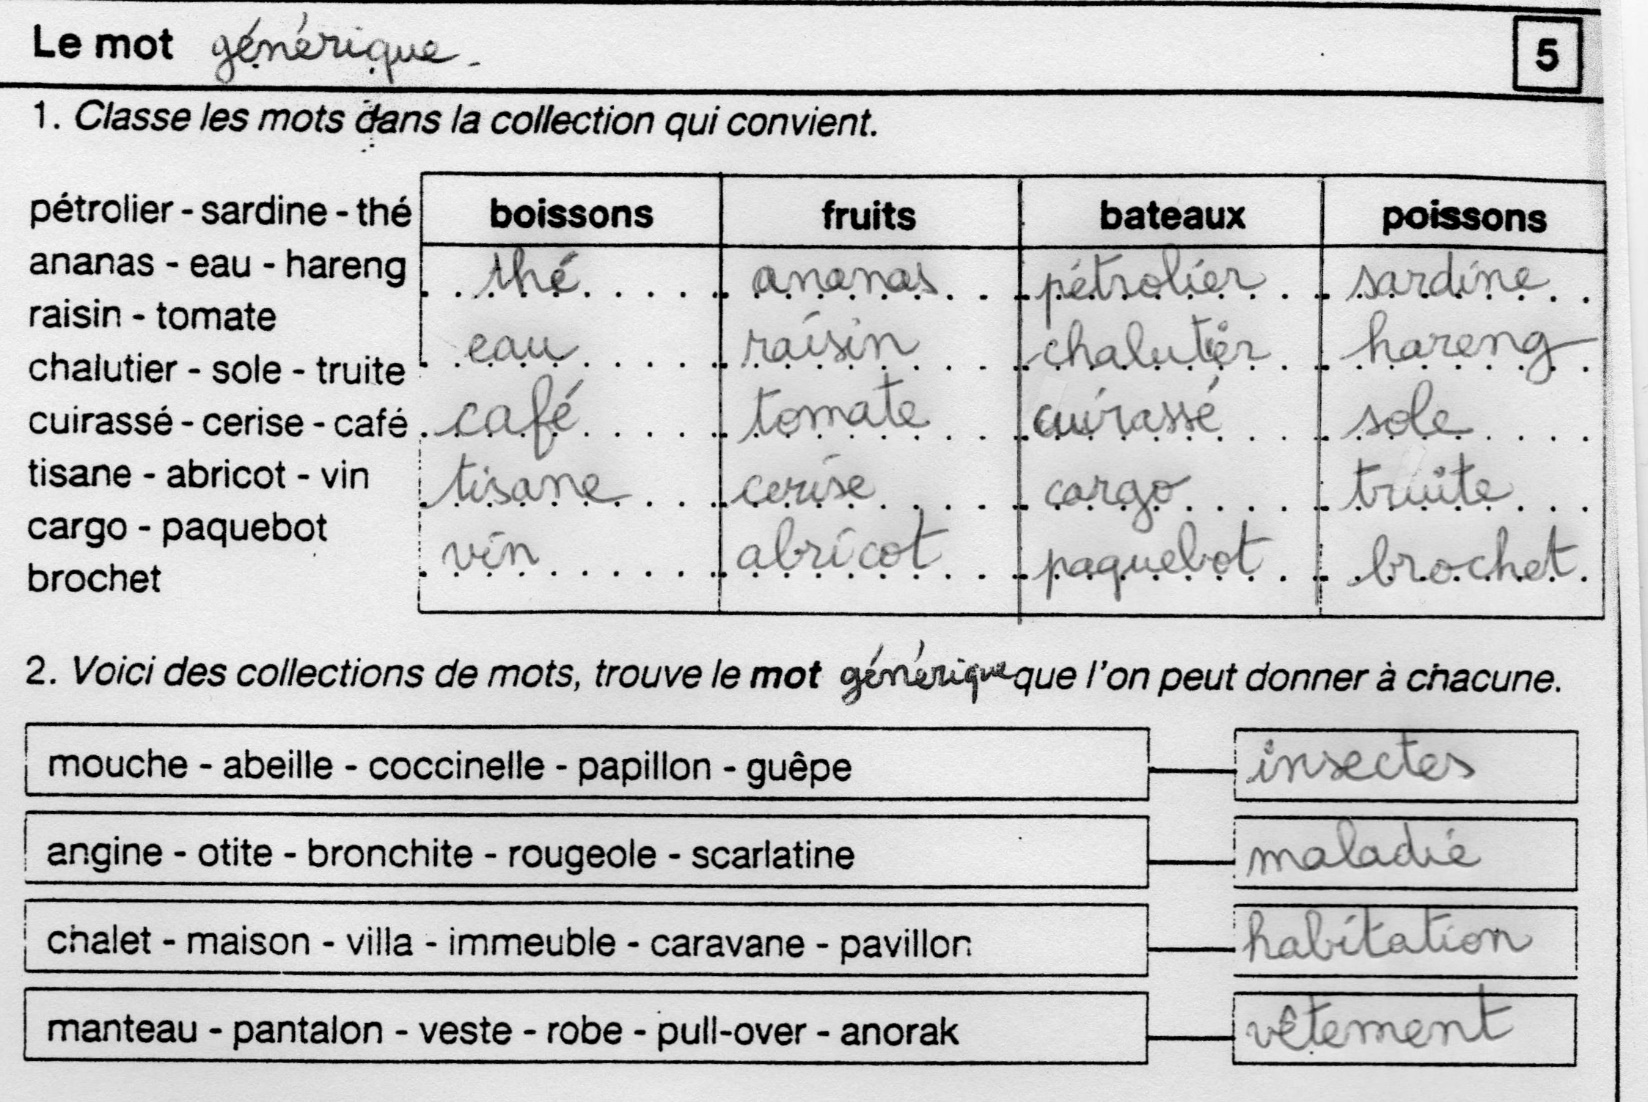 Le mot générique - 5
1. Classe les mots dans la collection qui convient.
pétrolier - sardine - thé
ananas - eau - hareng
raisin - tomate
chalutier - sole - truite
cuirassé - cerise - café
tisane - abricot - vin
cargo - paquebot
brochet
boissons fruits bateaux poissons
thé ananas pétrolier sardine
eau raisin chalutier hareng
café tomate cuirassé sole
tisane cerise cargo truite
vin abricot paquebot brochet
2. Voici des collections de mots, trouve le mot générique que l'on peut donner à chacune.
mouche - abeille - coccinelle - papillon - guêpe insectes
angine - otite - bronchite - rougeole - scarlatine maladie
chalet - maison - villa - immeuble - caravane - pavillon habitation
manteau - pantalon - veste - robe - pull-over - anorak vêtement